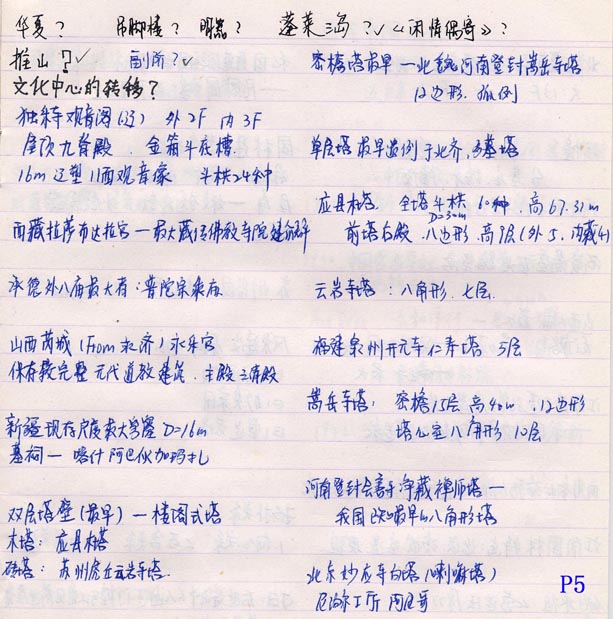 华夏？ 吊脚楼？ 明器？ 蓬莱岛？✓《闲情偶寄》？
推山？✓ 副阶？✓
文化中心的转移？
独特观音阁（辽） 外2F 内3F
屋顶九脊殿．金箱斗底槽．
16m 辽塑11面观音像 斗栱24种
西藏拉萨布达拉宫—最大藏传佛教寺院建筑群
承德外八庙最大者：普陀宗乘庙
山西芮城（from 永济）永乐宫
保存最完整元代道教建筑．主殿三清殿
新疆现存尺度最大 D=16m
墓祠— 喀什阿巴伙加玛扎
双层塔壁（最早）—楼阁式塔
木塔：应县木塔
砖塔：苏州虎丘云岩寺塔．
密檐塔最早—北魏河南登封嵩岳寺塔
12边形．孤例
单层塔最早遗例于北齐，
应县木塔． 全塔斗栱60种．高67.31m
D=30m
前塔后殿．八边形．高9层（外5．内藏4）
云岩寺塔：八角形．七层．
福建泉州开元寺仁寿塔 5层
嵩岳寺塔：密檐15层 高40m．12边形
塔心室八角形 10层
河南登封会善寺净藏禅师塔—
我国已知最早的八角形塔
北京妙应寺白塔（喇嘛塔）
尼泊尔工匠 阿尼哥
P5